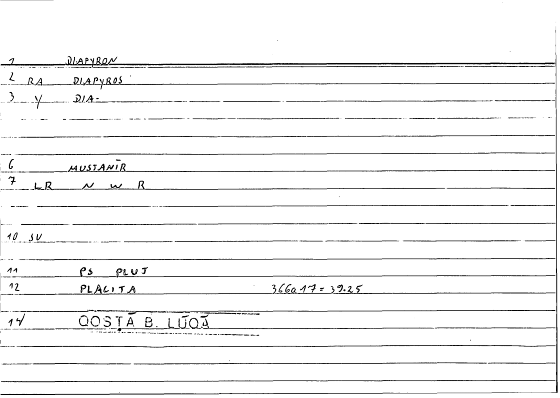 1 DIAPYRON
2 RA DIAPYROS
3 Y DIA-
6 MUSTANĪR
7 LR N W R
10 SU
11 PS PLUT
12 PLACITA 366a17 = 39.25
14 QOSṬĀ B. LŪQĀ